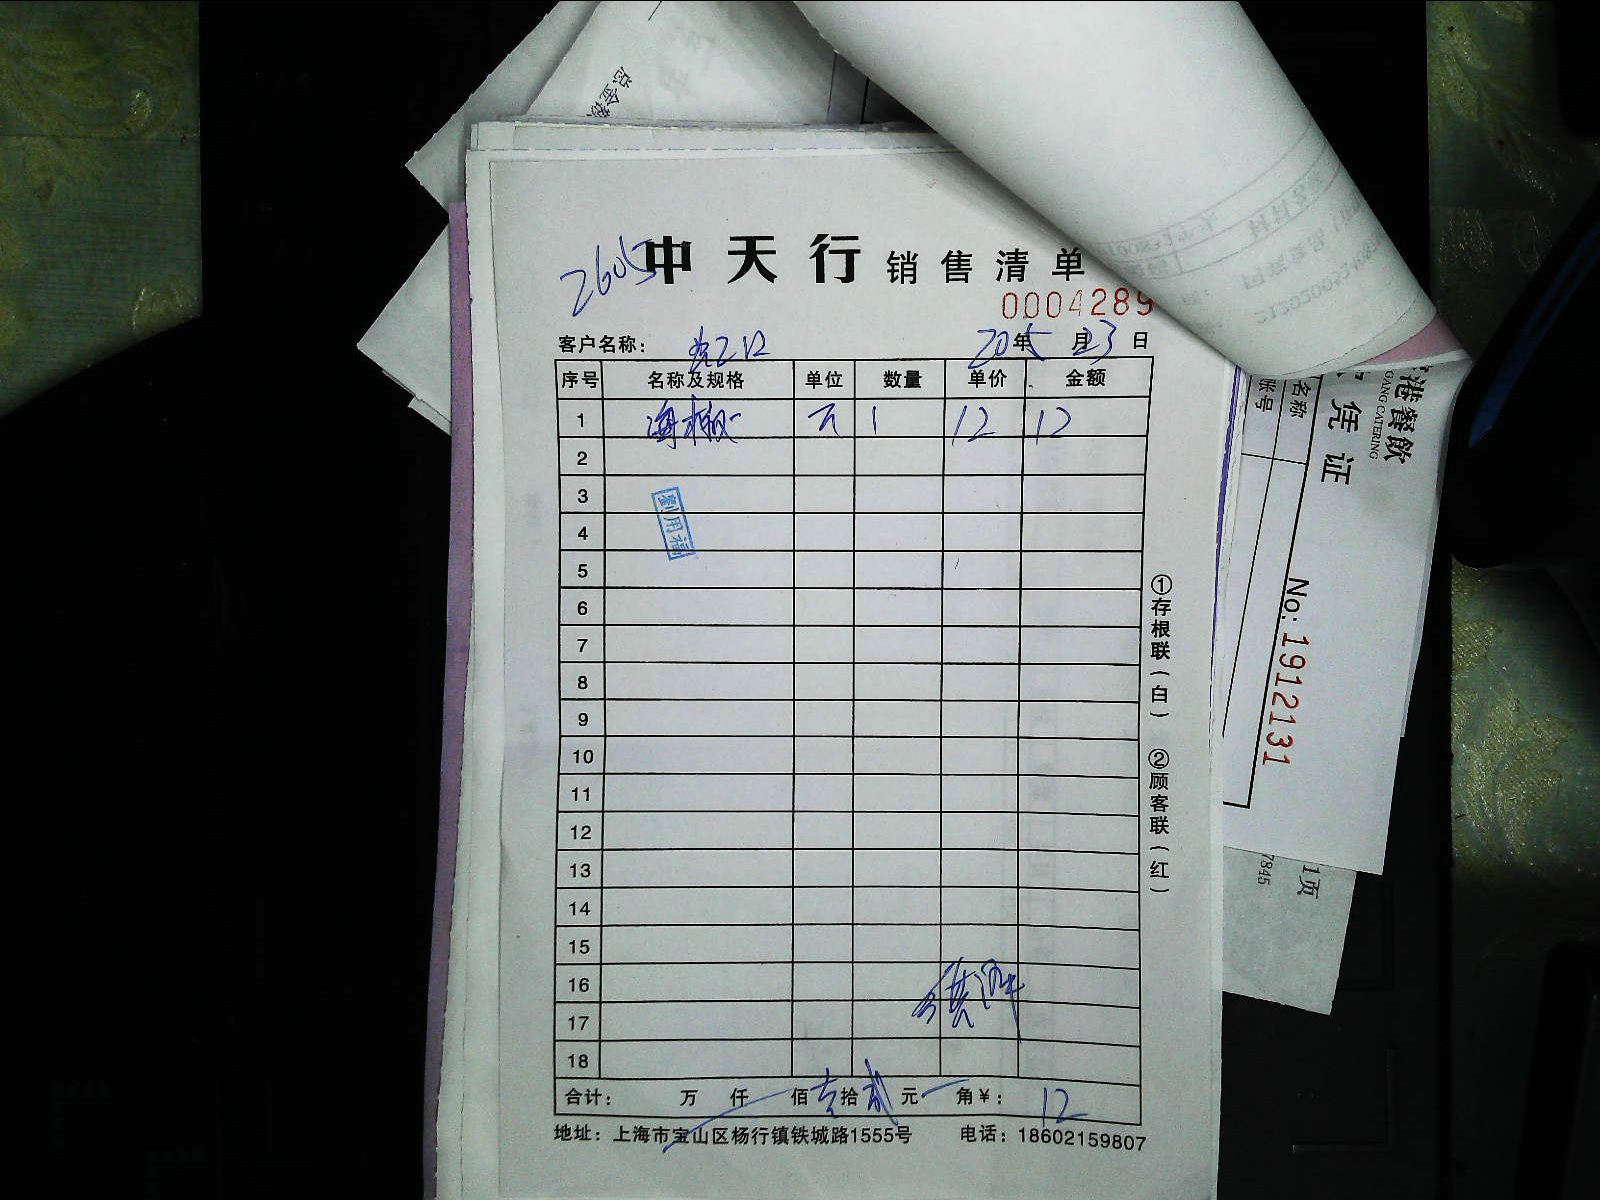 总金额
2605
中天行 销售清单
0004289
客户名称: 2015年5月23日
序号 名称及规格 单位 数量 单价 金额
1 1 12 12
2
3
4
剩用福
5
6
7
8
9
10
11
12
13
14
15
16
17
18
合计: 万 仟 佰 壹拾贰元 角¥: 12
地址: 上海市宝山区杨行镇铁城路1555号 电话: 18602159807
①存根联(白) ②顾客联(红)
港餐飲
GANG CATERING
凭证
名称
账号
No: 1912131
1页
7845